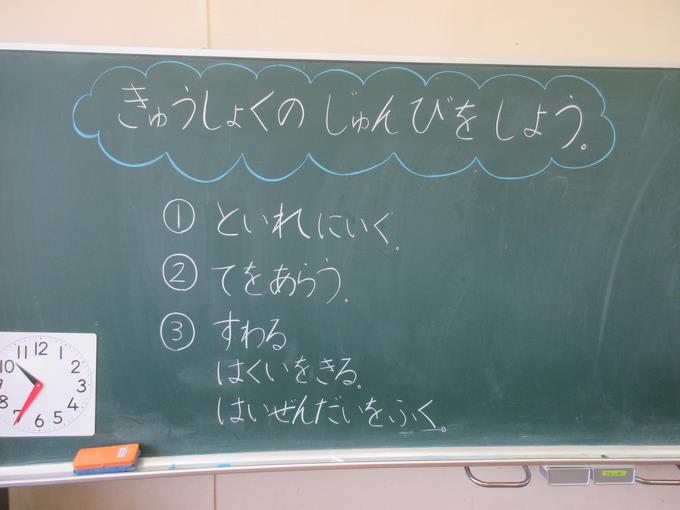 きゅうしょくの じゅんびを しよう。
① といれにいく。
② てをあらう。
③ すわる
はくいをきる。
はいぜんだいをふく。
11 12 1
10 2
9 3
8 4
7 6 5